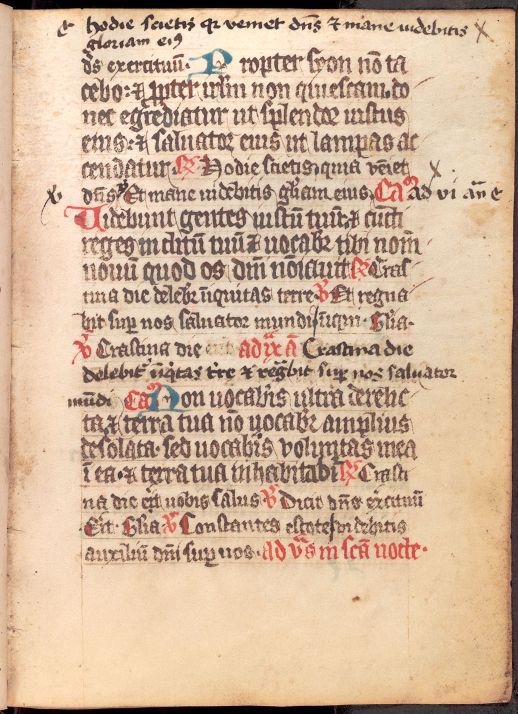 Hodie scietis qr veniet dn̄s ⁊ mane videbitis
gloriam eiꝰ
dō exercituū. Propter syon nō ta
cebo: ⁊ ꝓpter irl̄m non quiescam. do
nec egrediatur ut splendor iustus
eius: ⁊ saluator eius ut lampas ac
cendatur. Hodie scietis quia veniet
dn̄s Et mane uidebitis gl̄iam eius. Caꝰ ad vi
Videbunt gentes iustū tuū: ⁊ cūcti
reges inclitū tuū: ⁊ uocabr̄ tibi nom̄
nouū quod os dn̄i nōiauit Cras
tina die delebr̄ iniquitas terre. ℣ Et regna
bit suꝑ nos saluator mundi. Gl̄ia.
℣ Crastina die Crastina die
delebit̄ iiqtas tr̄re ⁊ regn̄bit suꝑ nos saluator
mūdi Caꝰ Non uocabis ultra derelic
ta: ⁊ terra tua nō uocabr̄ amplius
desolata. sed uocabis voluntas mea
ī ea. ⁊ terra tua inhabitabr̄ Crasti
na die erit uobis salus ℣ Dicit dn̄s exercituū
Erit. Gl̄ia ℣ Constantes estote videbitis
auxiliū dn̄i suꝑ uos. ad v̄s in scā nocte.